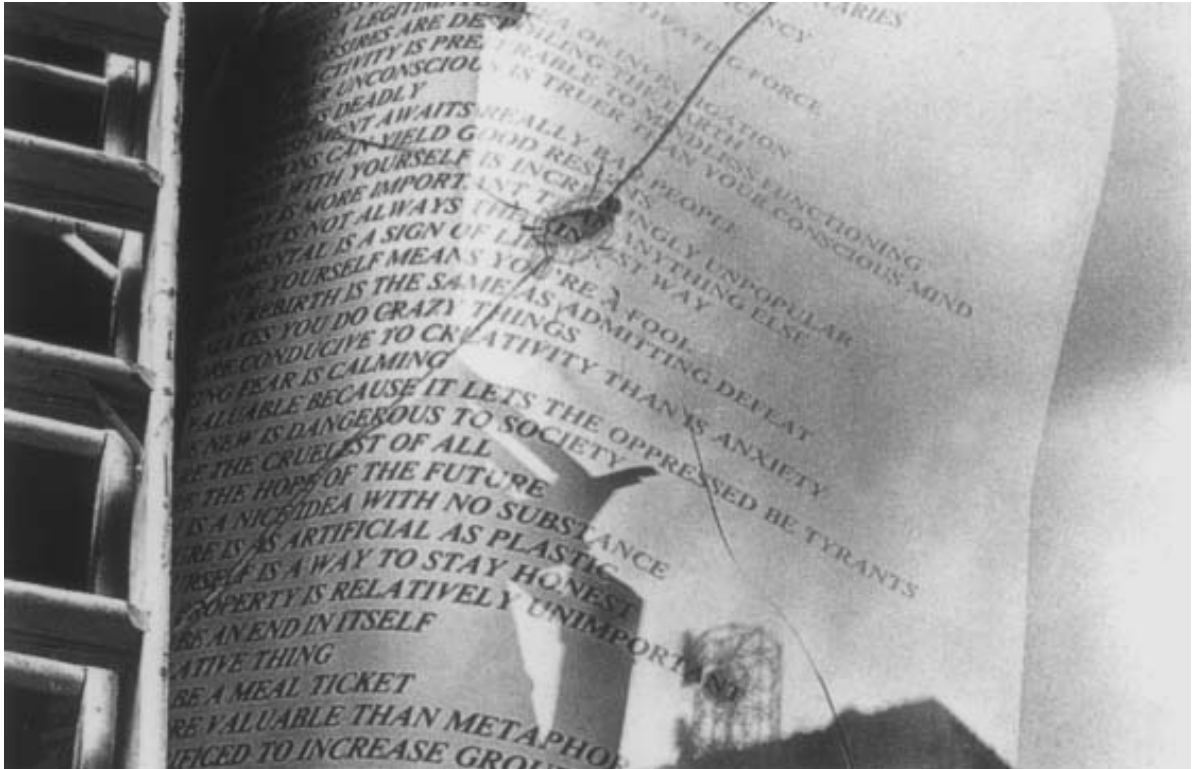 ARIES
ENCY
MOTIVATING FORCE
A LEGITIMATE AREA OF INVESTIGATION
DESIRES ARE DESPOILING THE EARTH
ACTIVITY IS PREFERABLE TO MINDLESS FUNCTIONING
UNCONSCIOUS IS TRUER THAN YOUR CONSCIOUS MIND
IS DEADLY
AWAITS REALLY BAD PEOPLE
CAN YIELD GOOD RESULTS
WITH YOURSELF IS INCREASINGLY UNPOPULAR
IS MORE IMPORTANT THAN ANYTHING ELSE
IS NOT ALWAYS THE WAY
MENTAL IS A SIGN OF LIFE
YOURSELF MEANS YOU'RE A FOOL
REBIRTH IS THE SAME AS ADMITTING DEFEAT
YOU DO CRAZY THINGS
CONDUCIVE TO CREATIVITY THAN IS ANXIETY
ING FEAR IS CALMING
VALUABLE BECAUSE IT LETS THE OPPRESSED BE TYRANTS
NEW IS DANGEROUS TO SOCIETY
THE CRUELEST OF ALL
THE HOPE OF THE FUTURE
IS A NICE IDEA WITH NO SUBSTANCE
IS AS ARTIFICIAL AS PLASTIC
URSELF IS A WAY TO STAY HONEST
ROPERTY IS RELATIVELY UNIMPORTANT
RE AN END IN ITSELF
LATIVE THING
BE A MEAL TICKET
RE VALUABLE THAN METAPHOR
IFICED TO INCREASE GROU